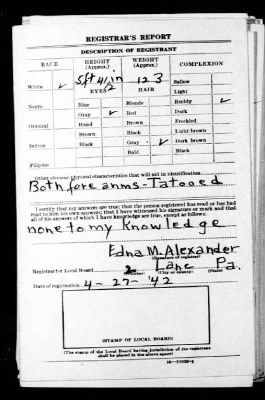 REGISTRAR'S REPORT
DESCRIPTION OF REGISTRANT
RACE HEIGHT (Approx.) WEIGHT (Approx.) COMPLEXION
5ft 4½in 123 Sallow
White ✓ EYES HAIR Light
Negro Blue Blonde Ruddy ✓
Gray ✓ Red Dark
Oriental Hazel Brown Freckled
Brown Black Light brown
Indian Black Gray ✓ Dark brown
Bald Black
Filipino
Other obvious physical characteristics that will aid in identification
Both fore arms-Tatooed
I certify that my answers are true; that the person registered has read or has had
read to him his own answers; that I have witnessed his signature or mark and that
all of his answers of which I have knowledge are true, except as follows:
none to my knowledge
Edna M. Alexander
(Signature of registrar)
Registrar for Local Board 2 Lanc Pa.
(Number) (City or county) (State)
Date of registration 4-27-'42
(STAMP OF LOCAL BOARD)
(The stamp of the Local Board having jurisdiction of the registrant
shall be placed in the above space)